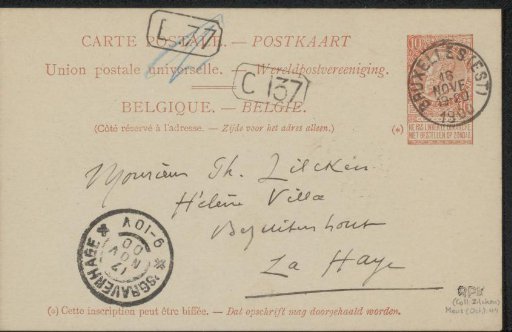 L 77
CARTE POSTALE. — POSTKAART
Union postale universelle. — Wereldpostvereeniging.
C 137
BELGIQUE. — BELGIË.
(Côté réservé à l'adresse. — Zijde voor het adres alleen.)
(*)
10
BRUXELLES (EST)
16
NOVE
1900
NE PAS LIVRER LE DIMANCHE
NIET BESTELLEN OP ZONDAG
Monsieur Ph. Zilcken
Hélène Villa
Bezuidenhout
La Haye
'SGRAVENHAGE
9-10V
17
NOV
00
(*) Cette inscription peut être biffée. — Dat opschrift mag doorgehaald worden.
(Coll. Zilcken)